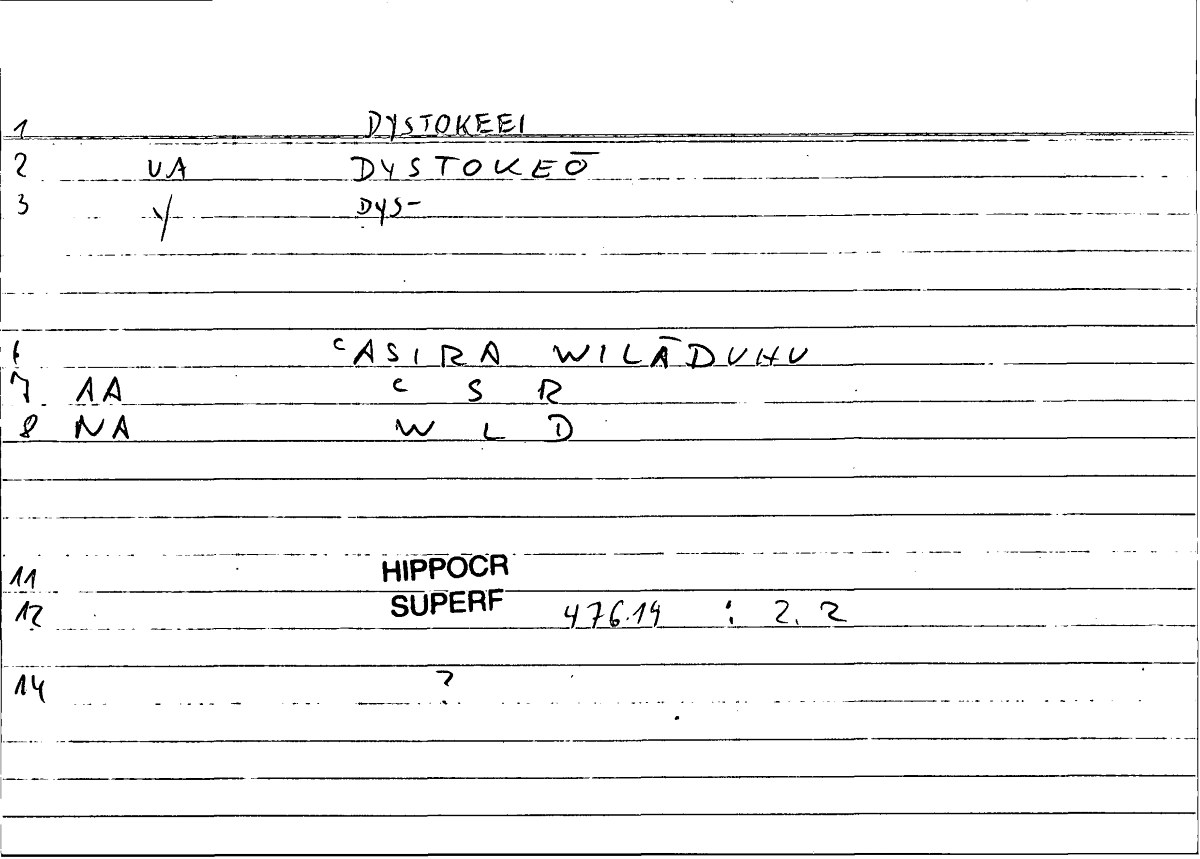 1 DYSTOKEEI
2 VA DYSTOKEŌ
3 Y DYS-
6 ᶜASIRA WILĀDUHU
7 AA ᶜ S R
8 NA W L D
11 HIPPOCR
12 SUPERF 476.19 : 2.2
14 ?